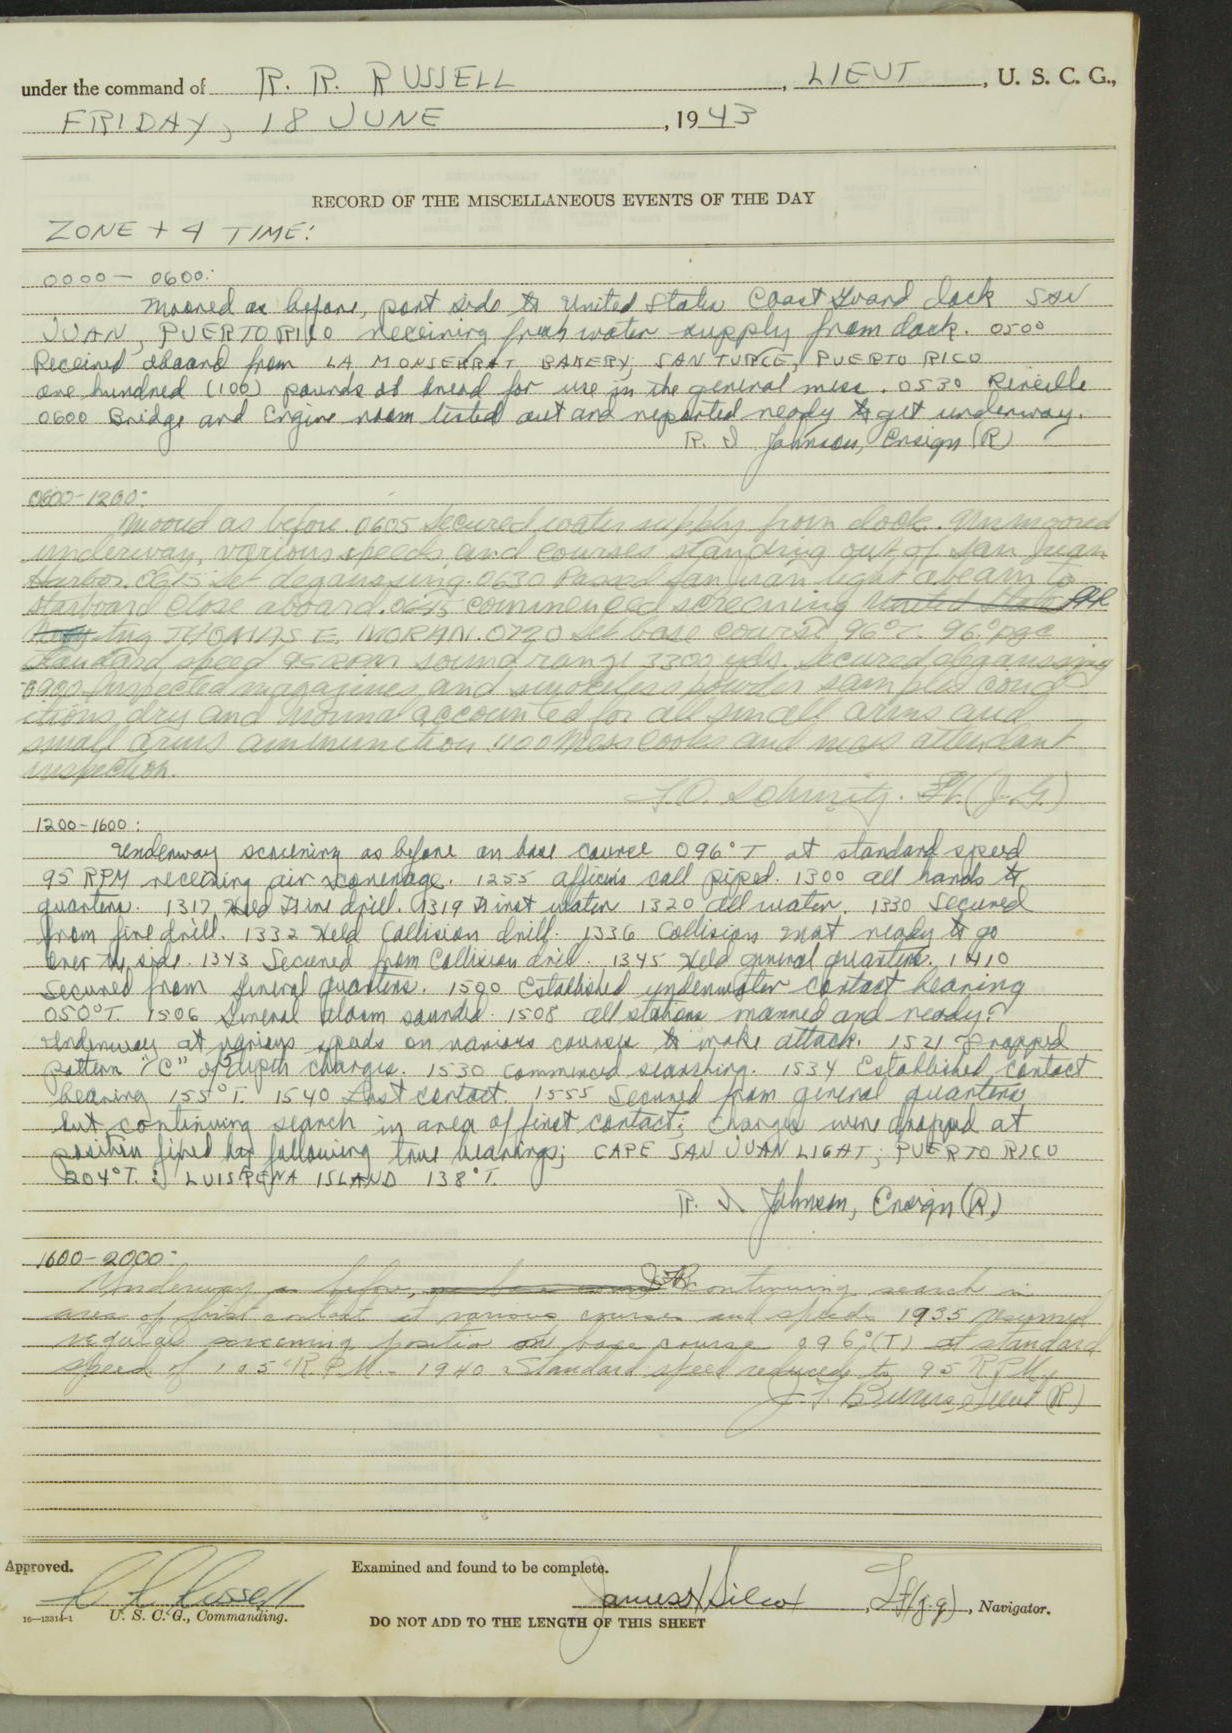 under the command of R. R. RUSSELL, LIEUT, U. S. C. G.,
FRIDAY, 18 JUNE, 1943
RECORD OF THE MISCELLANEOUS EVENTS OF THE DAY
ZONE + 4 TIME:
0000 - 0600:
Moored as before, port side to United States Coast Guard dock SAN
JUAN, PUERTO RICO receiving fresh water supply from dock. 0500
Received aboard from LA MONSERRAT BAKERY, SAN TURCE, PUERTO RICO
one hundred (100) pounds of bread for use in the general mess. 0530 Reveille
0600 Bridge and Engine room tested out and reported ready to get underway.
R. Johnson, Ensign (R)
0600-1200:
Moored as before. 0605 Secured water supply from dock. Unmoored
underway, various speeds and courses standing out of San Juan
Harbor. 0615 Set degaussing. 0630 Passed San Juan light abeam to
starboard close aboard. commenced screening United States
Navy tug THOMAS E. MORAN. 0720 Set base course 96°T. 96° pgc
standard speed 95 RPM sound range 3300 yds. Secured degaussing
0900 Inspected magazines and smokeless powder samples cond
itions dry and normal accounted for all small arms and
small arms ammunition. 1100 Mess cooks and mess attendant
inspection.
Schmitz. Lt. (J.G.)
1200-1600:
Underway screening as before on base course 096°T at standard speed
95 RPM receiving air coverage. 1255 officers call piped. 1300 all hands to
quarters. 1317 Held Fire drill. 1319 First water 1320 All water. 1330 Secured
from fire drill. 1332 Held Collision drill. 1336 Collision mat ready to go
over the side. 1343 Secured from Collision drill. 1345 Held general quarters. 1410
Secured from General Quarters. 1500 Established underwater contact bearing
050°T. 1506 General Alarm sounded. 1508 all stations manned and ready.
Underway at various speeds on various courses to make attack. 1521 Dropped
pattern "C" of depth charges. 1530 Commenced searching. 1534 Established contact
bearing 155°T. 1540 Lost contact. 1555 Secured from general quarters
but continuing search in area of first contact; charges were dropped at
position fixed by following true bearings; CAPE SAN JUAN LIGHT, PUERTO RICO
204°T.; ISLAND 138°T.
R. Johnson, Ensign (R)
1600-2000:
Underway as before, continuing search in
area of first contact at various courses and speeds 1935 resumed
regular screening position on base course 096°(T) at standard
speed of 105 R.P.M. - 1940 Standard speed reduced to 95 R.P.M.
J. F. Lieut (R)
Approved.
R R Russell
16-13314-1 U. S. C. G., Commanding.
Examined and found to be complete.
James Wilcox, Lt(j.g), Navigator.
DO NOT ADD TO THE LENGTH OF THIS SHEET